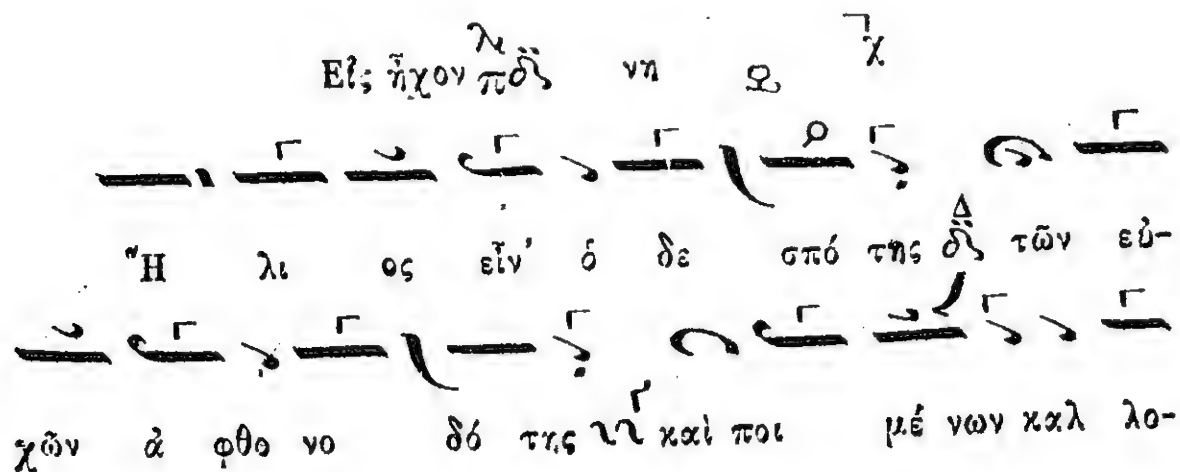 Εἰς ἦχον λι π νη χ
Ἥ λι ος εἶν' ὁ δε σπό της Δ τῶν εὐ-
χῶν ἀ φθο νο δό της Γ καὶ ποι μέ νων καλ λο-